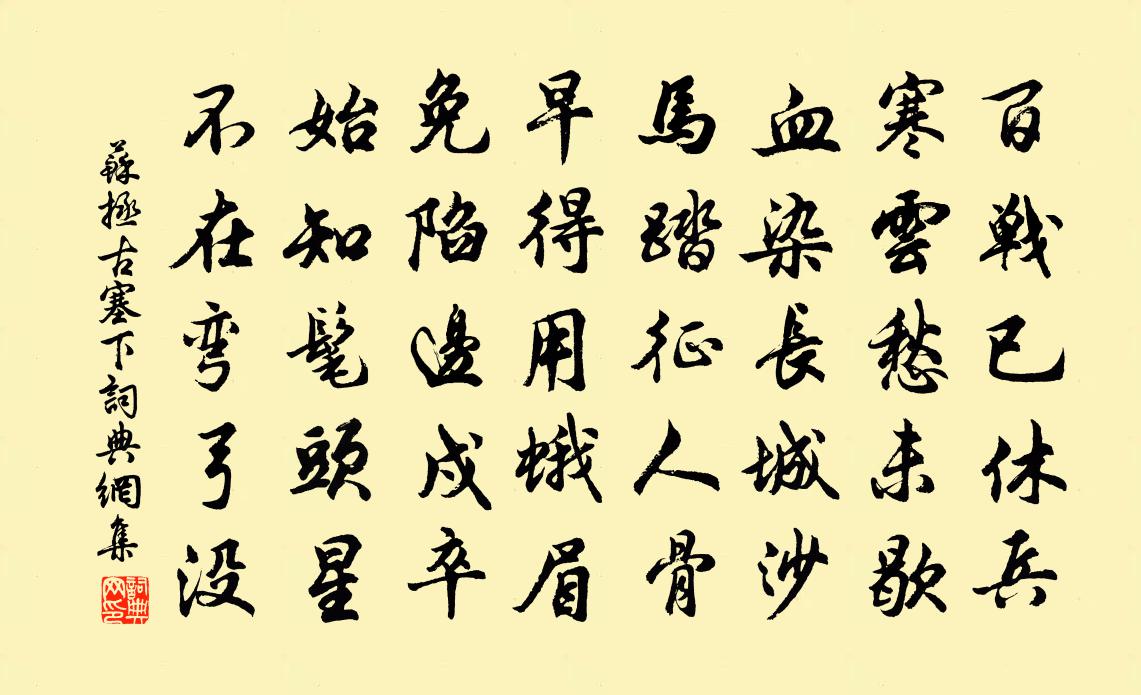 百戦已休兵
寒雲愁未歇
血染長城沙
馬踏征人骨
早得用蛾眉
免陷邊戍卒
始知髦頭星
不在弯弓没
蘇拯古塞下詞典網集
詞典網印